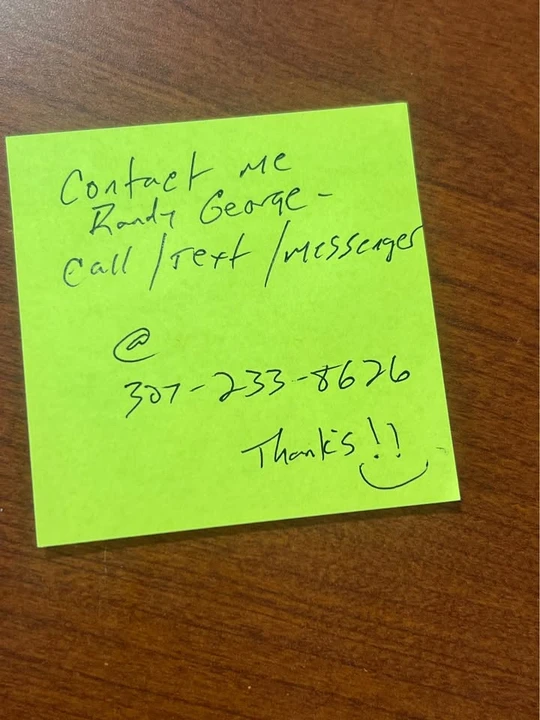 Contact me
Randy George -
Call / Text / messenger
@
307-233-8626
Thanks!!